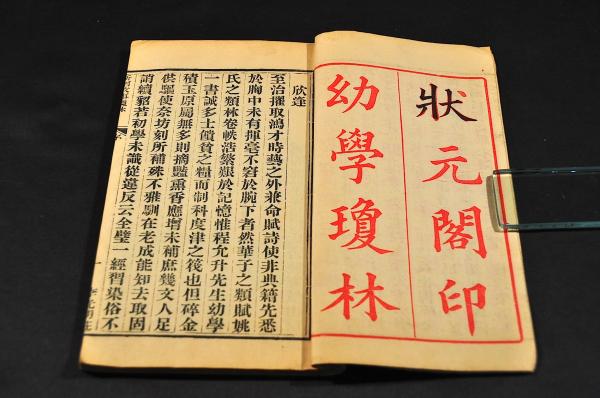 狀元閣印
幼學瓊林
欣逢
至治擢取鴻才時藝之外兼命賦詩使非典籍先悉
於胸中未有揮毫不窘於腕下者然華子之類賦姚
氏之類林卷帙浩繁艱於記憶惟程允升先生幼學
一書誠多士饋貧之糧而制科度津之筏也但碎金
積玉原屬無多則摘豔熏香應增未補庶幾文人足
供驅使奈坊刻所補殊不雅馴在老成能知去取固
誚續貂若初學未識從違反云全璧一經習染俗不